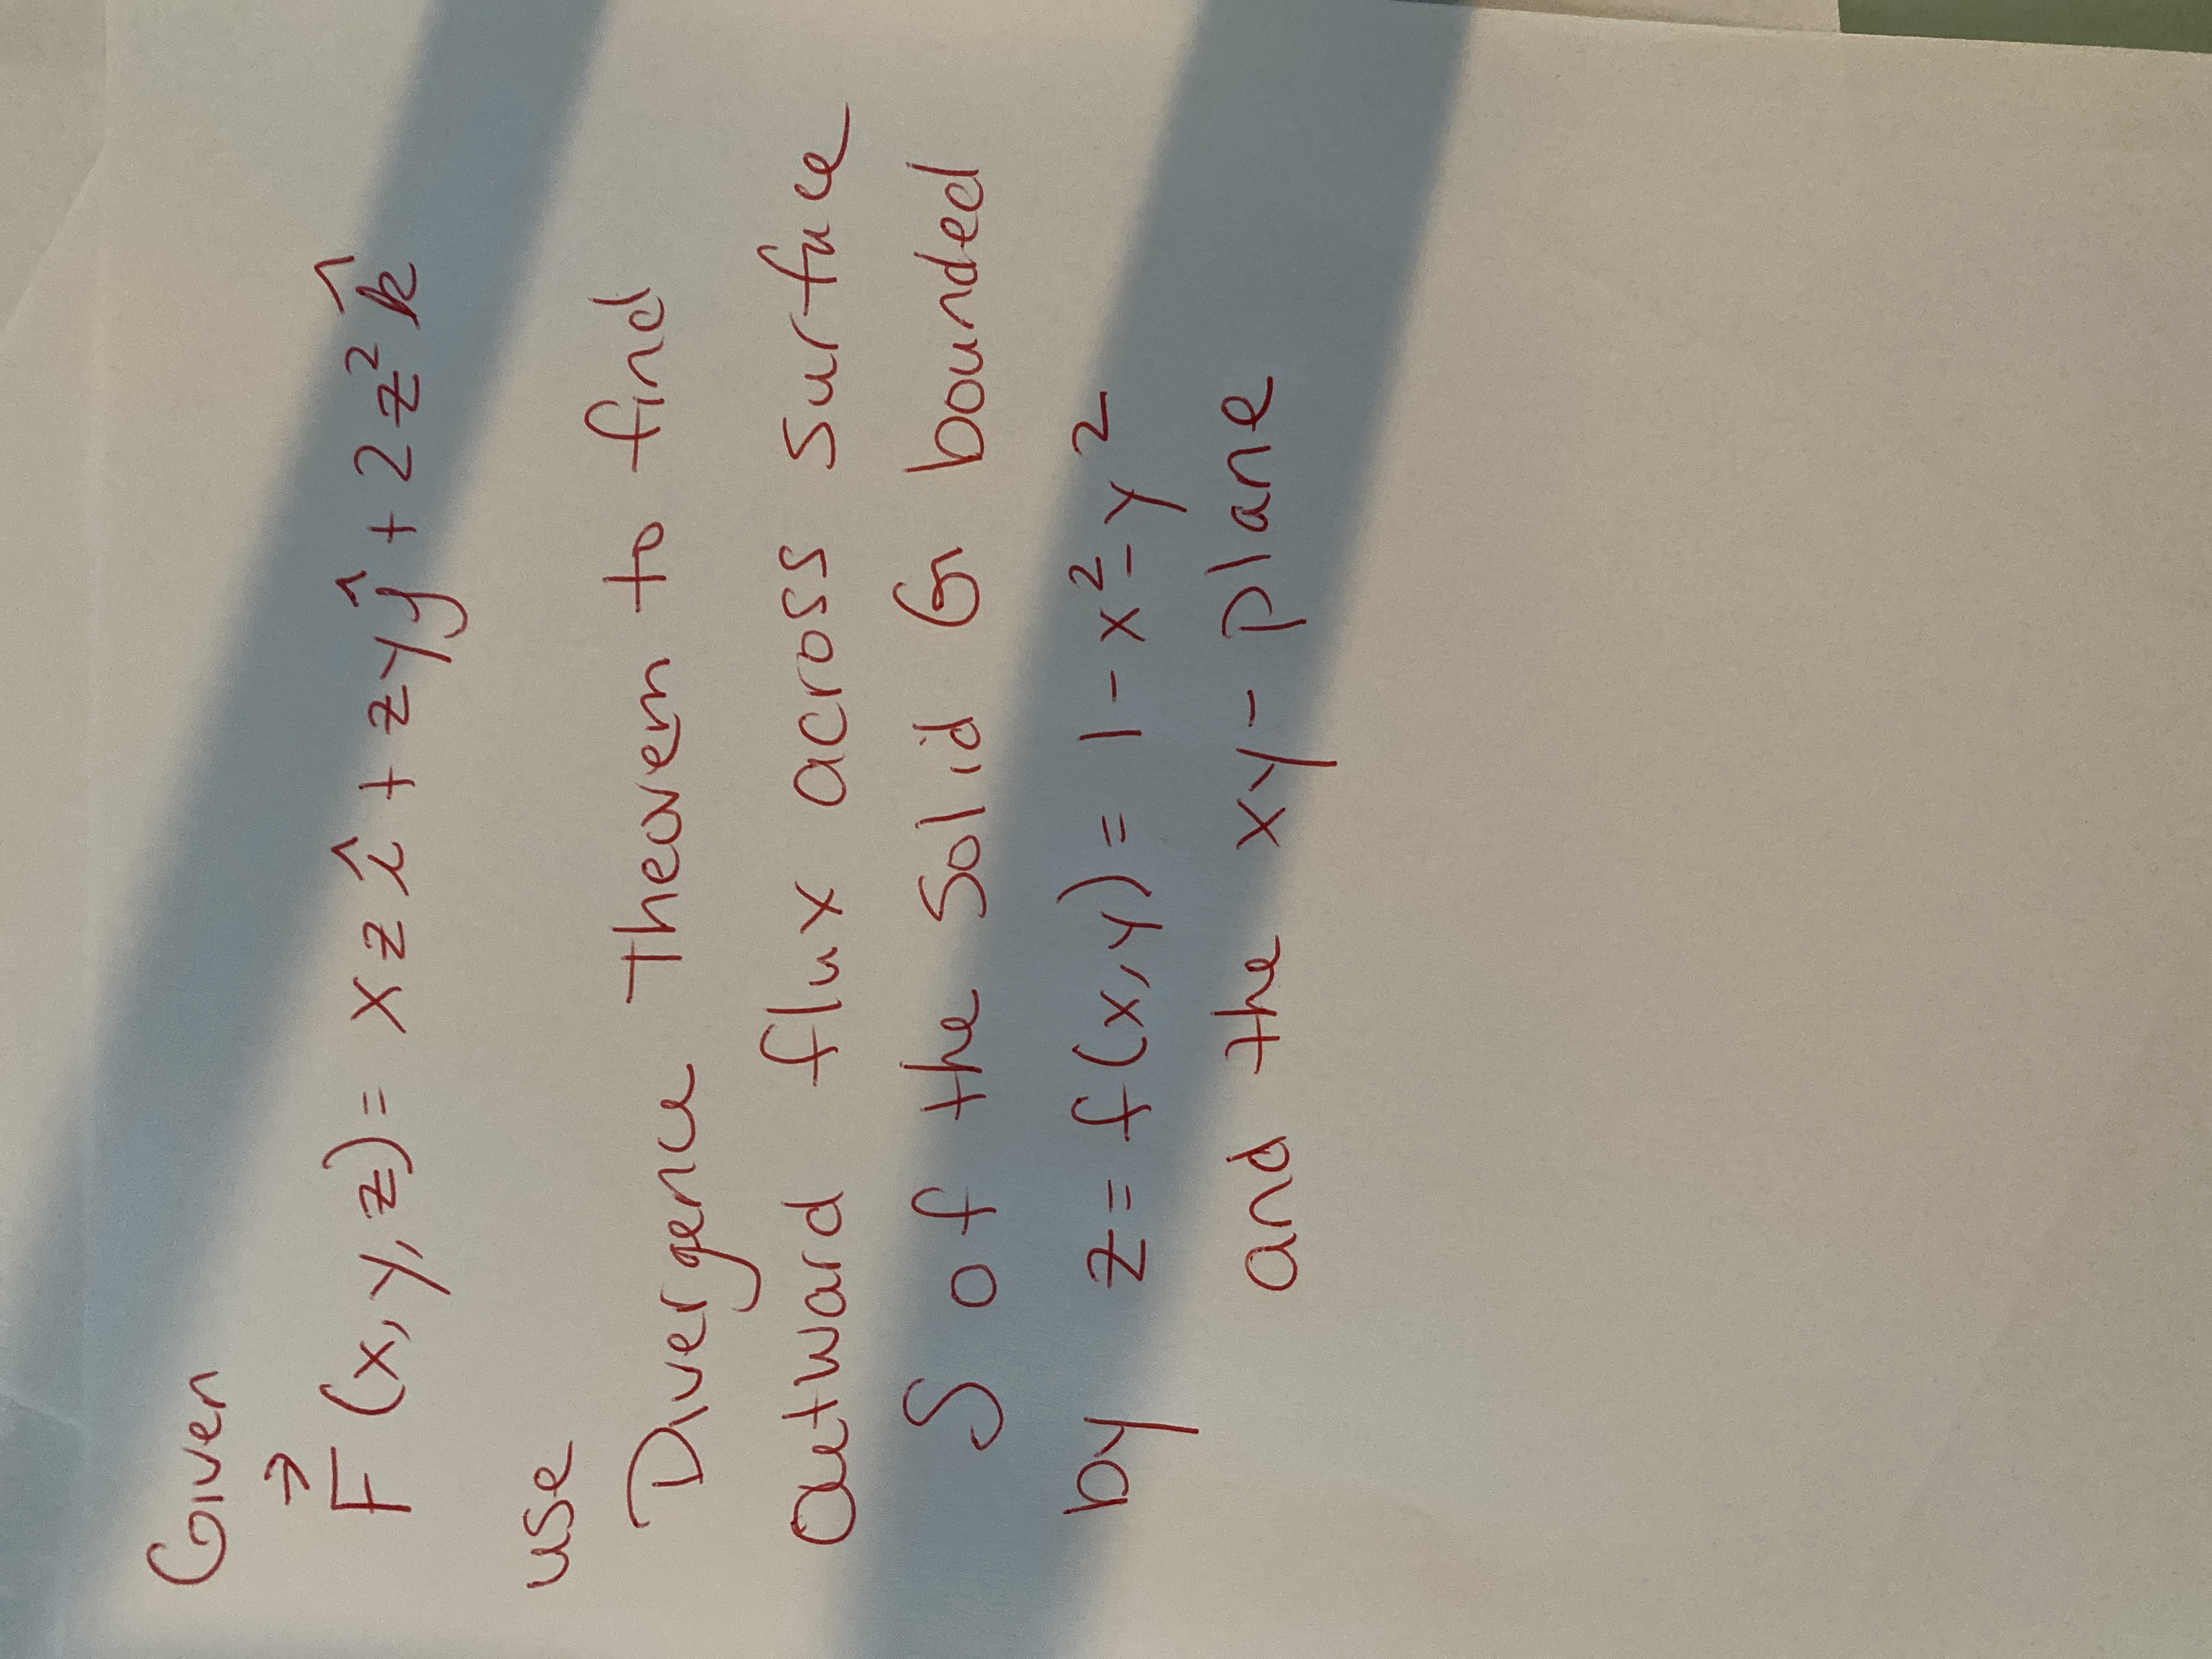 Given
F⃗ (x, y, z) = xz î + zy ĵ + 2z² k̂
use
Divergence Theorem to find
outward flux across surface
S of the solid G bounded
by z = f(x, y) = 1 - x² - y²
and the xy - plane